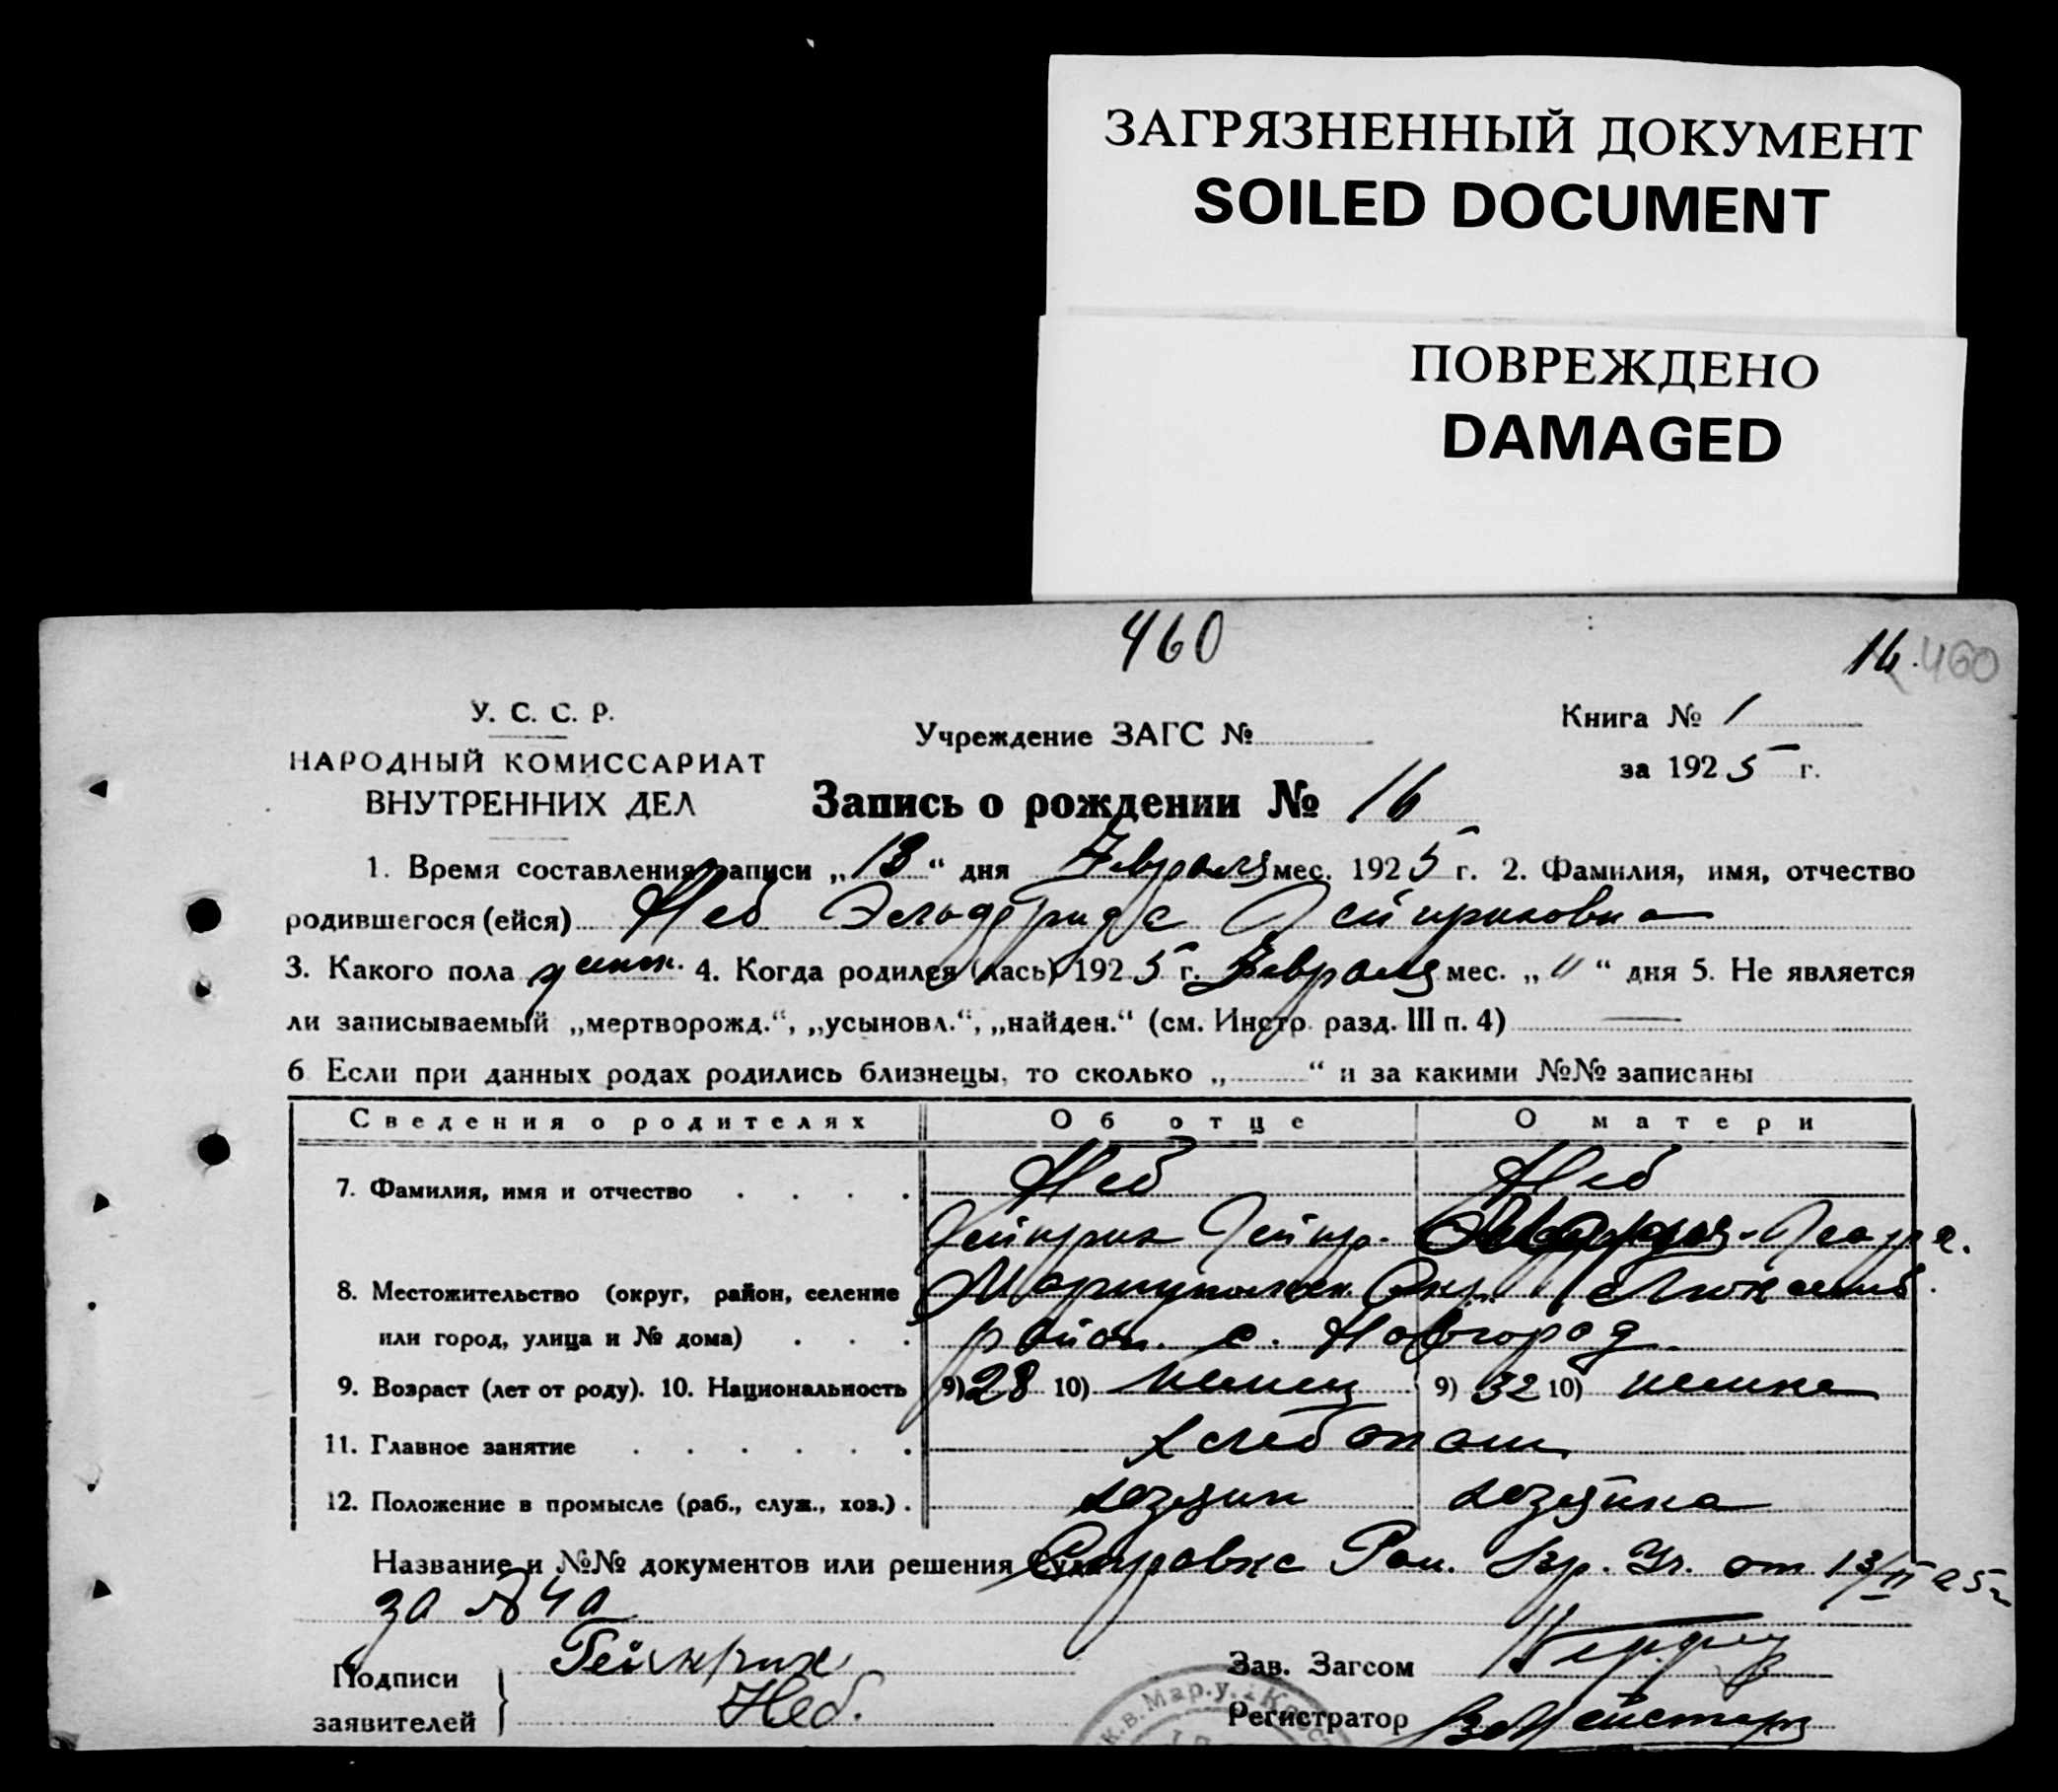 ЗАГРЯЗНЕННЫЙ ДОКУМЕНТ
SOILED DOCUMENT
ПОВРЕЖДЕНО
DAMAGED
460
16. 460
У. С. С. Р.
НАРОДНЫЙ КОМИССАРИАТ
ВНУТРЕННИХ ДЕЛ
Учреждение ЗАГС №
Книга № 1
за 1925 г.
Запись о рождении № 16
1. Время составления записи „13“ дня Февраля мес. 1925 г. 2. Фамилия, имя, отчество
родившегося (ейся) Неб Гейнриховна
3. Какого пола женск. 4. Когда родился (лась) 1925 г. Февраля мес. „11“ дня 5. Не является
ли записываемый „мертворожд.“, „усыновл.“, „найден.“ (см. Инстр. разд. III п. 4) —
6 Если при данных родах родились близнецы, то сколько „ “ и за какими №№ записаны
Сведения о родителях Об отце О матери
7. Фамилия, имя и отчество Неб Неб
Гейнрих Гейнр. Георг.
8. Местожительство (округ, район, селение Мариупольск. Окр. Люксемб.
или город, улица и № дома) район. с. Новгород
9. Возраст (лет от роду). 10. Национальность 9) 28 10) немец 9) 32 10) немка
11. Главное занятие хлебопаш
12. Положение в промысле (раб., служ., хоз.) хозяин хозяйка
Название и №№ документов или решения суда Справка от 13/II 25г
за № 40
Подписи
заявителей
Гейнрих
Неб.
Зав. Загсом
Регистратор